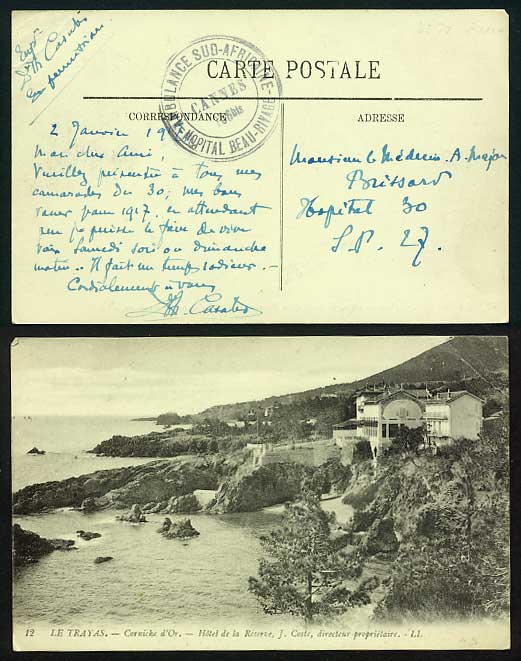 Expr
Dr M Casabo
En permission
CARTE POSTALE
AMBULANCE SUD-AFRICAINE
CANNES
HOPITAL BEAU-RIVAGE
CORRESPONDANCE
ADRESSE
2 Janvier 19
Mon cher Ami,
Veuillez présenter à tous mes
camarades du 30, mes bons
vœux pour 1917, en attendant
que je puisse le faire de vive
voix samedi soir ou dimanche
matin. Il fait un temps radieux. —
Cordialement à vous
Monsieur le Médecin A. Major
Brissard
Hopital 30
S.P. 27.
12 LE TRAYAS. — Corniche d'Or. — Hôtel de la Réserve, J. Coste, directeur-propriétaire. - LL